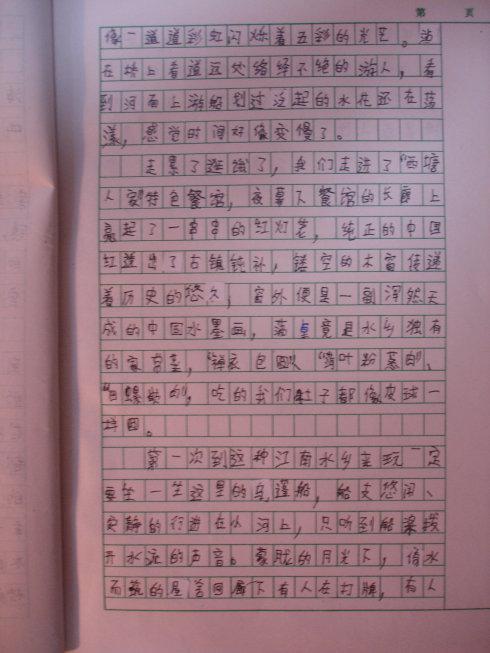 第 页
像一道道彩虹闪烁着五彩的光芒。站
在桥上看着远处络绎不绝的游人,看
到河面上游船划过泛起的水花还在荡
漾,感觉时间好像变慢了。
走累了逛饿了,我们走进了“西塘
人家”特色餐馆,夜幕下餐馆的长廊上
亮起了一串串的红灯笼,纯正的中国
红道出了古镇纯朴,镂空的木窗传递
着历史的悠久,窗外便是一副浑然天
成的中国水墨画,满桌竟是水乡独有
的家常菜,“馄饨包圆” “荷叶粉蒸肉”、
“田螺塞肉”,吃的我们肚子都像皮球一
样圆。
第一次到这种江南水乡来玩一定
要坐一坐这里的乌篷船,船支悠闲、
安静的行进在小河上,只听到船桨拨
开水流的声音。朦胧的月光下,借水
而筑的屋舍回廊下有人在打牌,有人